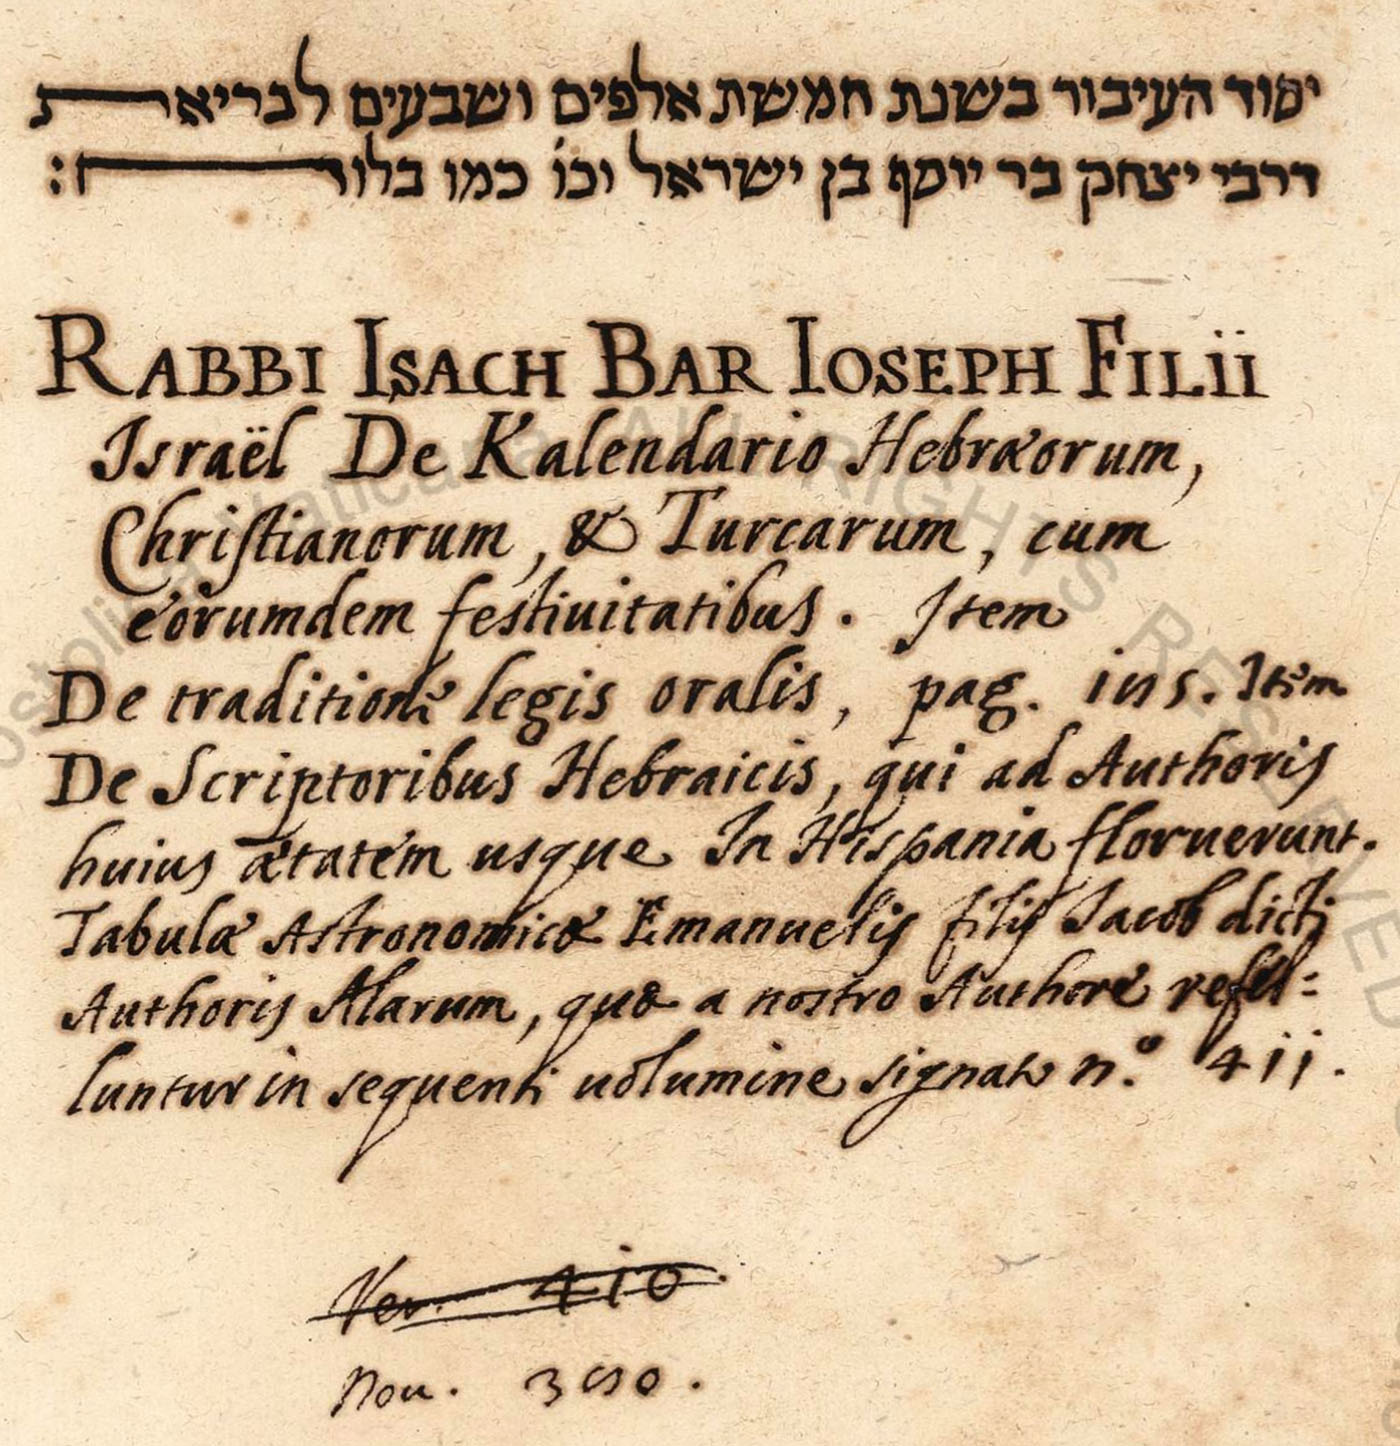 יסוד העיבור בשנת חמשת אלפים ושבעים לבריאת
דרבי יצחק בר יוסף בן ישראל וכו כמו בלוח:
RABBI ISACH BAR IOSEPH FILII
Israël De Kalendario Hebræorum,
Christianorum, & Turcarum, cum
eorumdem festiuitatibus. Item
De traditione legis oralis, pag. Item
De Scriptoribus Hebraicis, qui ad Authoris
huius ætatem usque In Hispania floruerunt.
Tabulæ Astronomicæ Emanuelis filij Iacob dicti
Authoris Alarum, quæ a nostro Authore refel=
luntur in sequenti uolumine signato n.º 411.
Ver. 410.
Nou. 390.